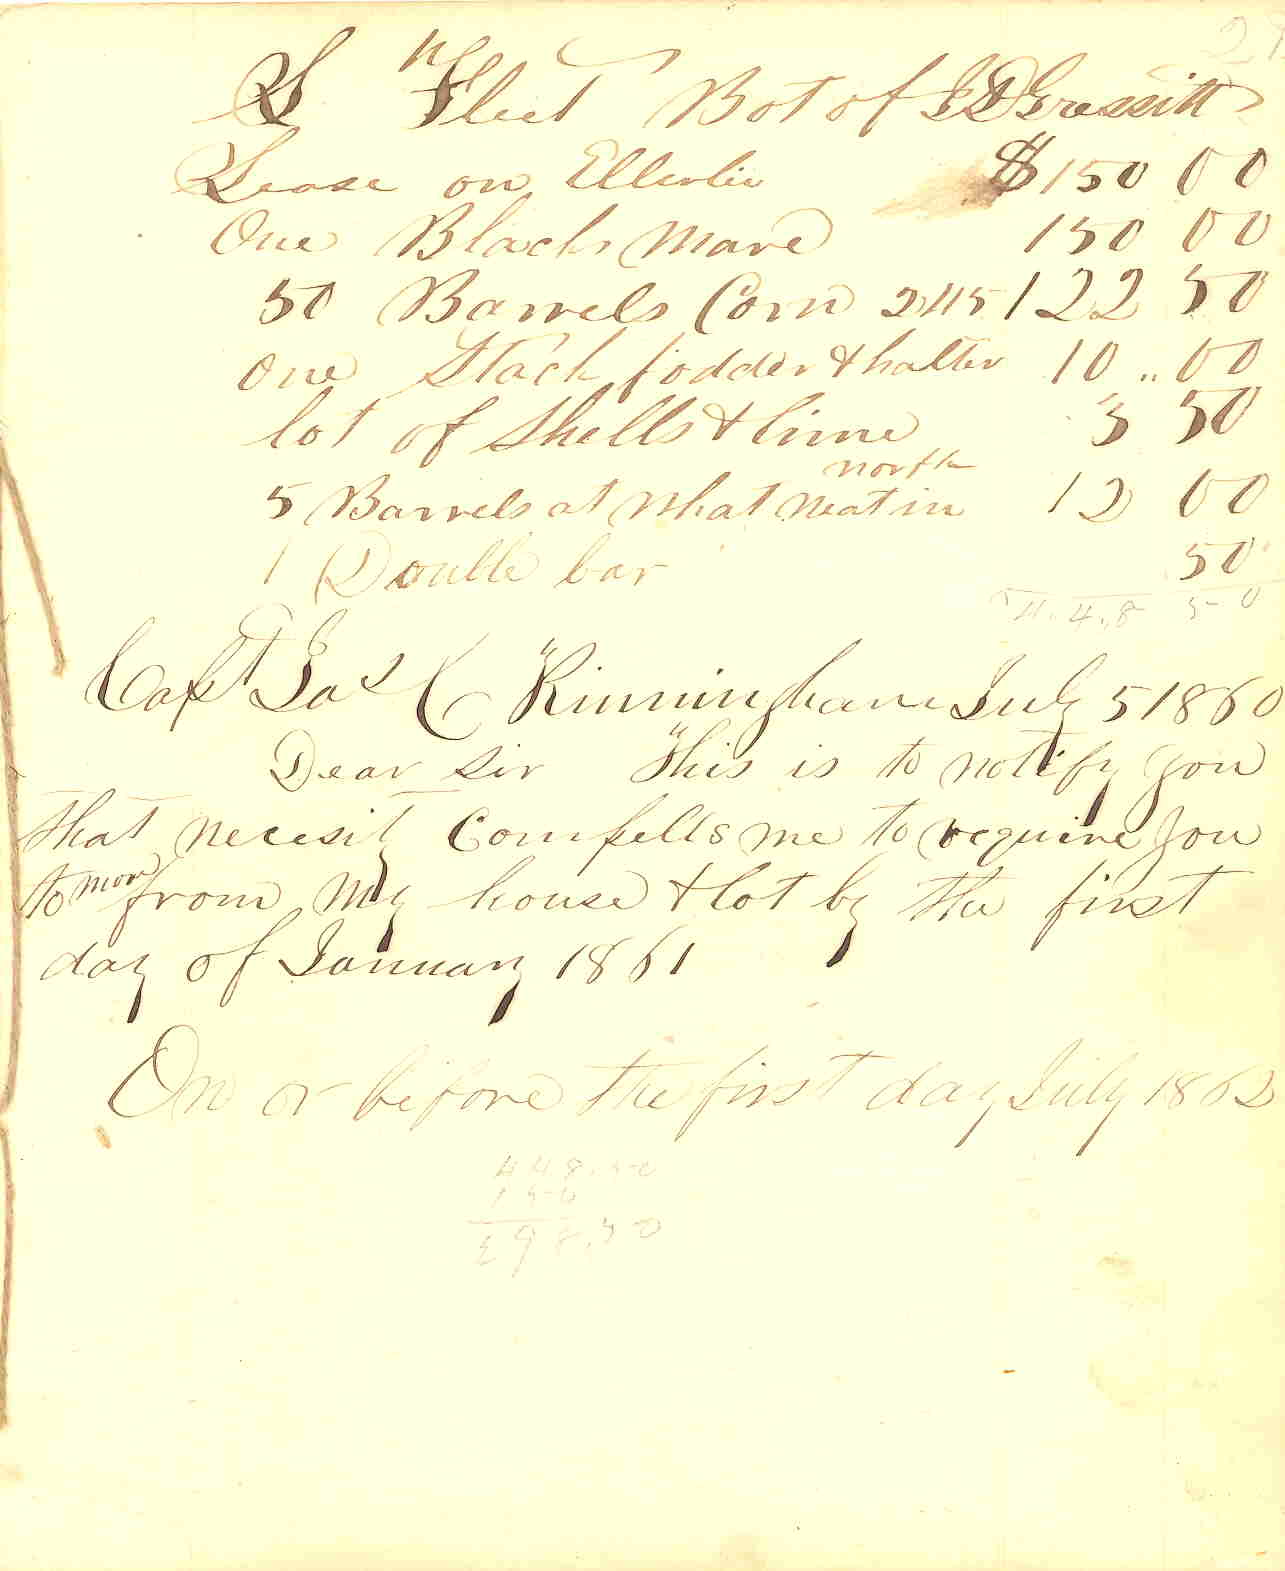 S Fleet Bot of J D Gressitt
Lease on Ellerslie $150 00
One Black Mare 150 00
50 Barrels Corn 245 122 50
One Stack fodder & halter 10 .. 00
lot of Shells & lime 3 50
north
5 Barrels at What neat in 12 00
1 Double bar 50
448 50
Capt Jas C Kinningham July 5 1860
Dear Sir This is to notify you
that necesity Compells me to require you
to mov from my house & lot by the first
day of January 1861
On or before the first day July 1862
448.50
150
598.50